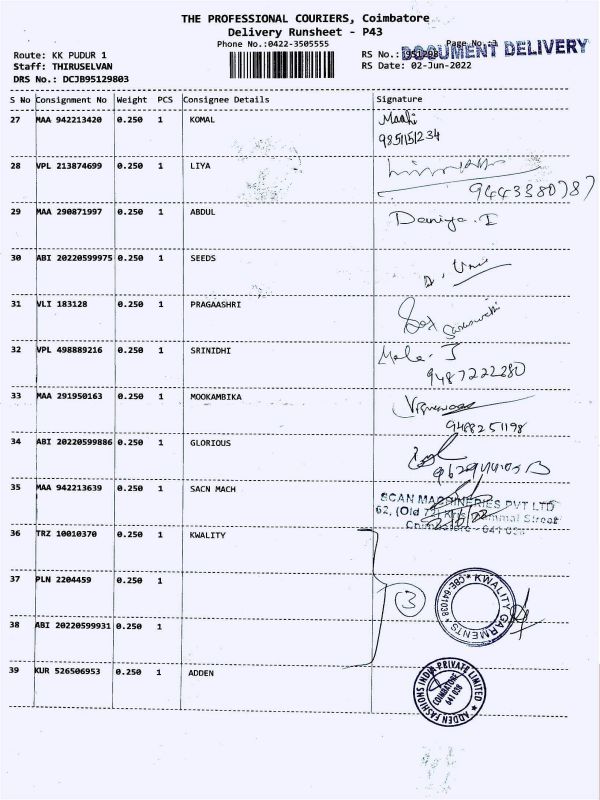 THE PROFESSIONAL COURIERS, Coimbatore
Delivery Runsheet - P43
Phone No.:0422-3505555
Page No.:3
Route: KK PUDUR 1
Staff: THIRUSELVAN
DRS No.: DCJB95129803
RS No.:
DOCUMENT DELIVERY
RS Date: 02-Jun-2022
S No Consignment No Weight PCS Consignee Details Signature
27 MAA 942213420 0.250 1 KOMAL
9851151234
28 VPL 213874699 0.250 1 LIYA
9443380787
29 MAA 290871997 0.250 1 ABDUL Daniya. I
30 ABI 20220599975 0.250 1 SEEDS
31 VLI 183128 0.250 1 PRAGAASHRI
32 VPL 498889216 0.250 1 SRINIDHI Mala. J
9487222880
33 MAA 291950163 0.250 1 MOOKAMBIKA
9488251198
34 ABI 20220599886 0.250 1 GLORIOUS
35 MAA 942213639 0.250 1 SACN MACH
SCAN MACHINERIES PVT LTD
62, (Old Street
Coimbatore - 641 038
36 TRZ 10010370 0.250 1 KWALITY
37 PLN 2204459 0.250 1
3
KWALITY GARMENTS * CBE-641038 *
38 ABI 20220599931 0.250 1
39 KUR 526506953 1 ADDEN
ADDEN FASHIONS INDIA PRIVATE LIMITED
COIMBATORE
641 038